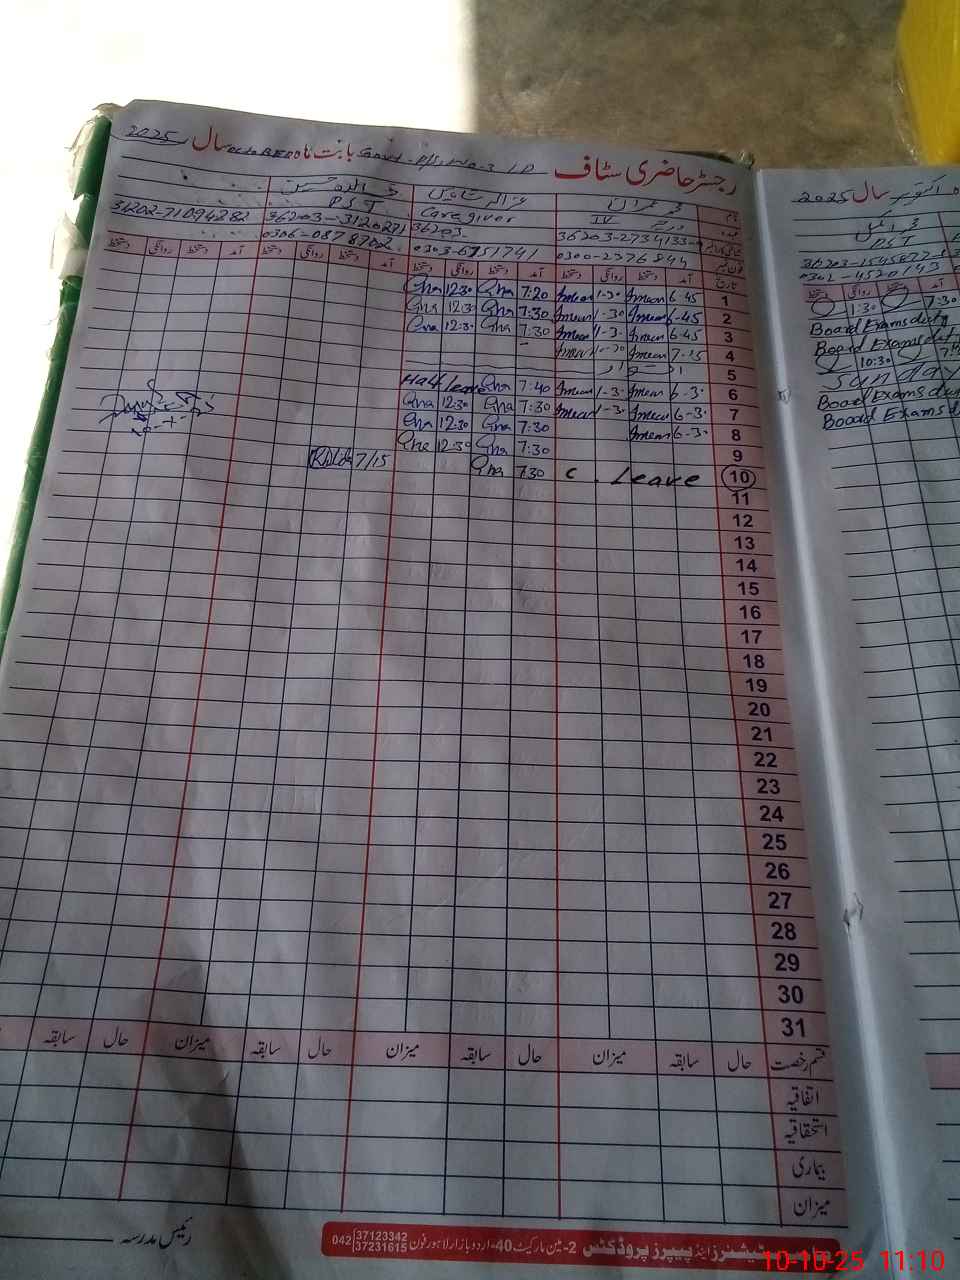 رجسٹر حاضری سٹاف Govt. P/S No-3 L.P بابت ماہ OCTOBER سال 2025
نام محمد عمران
عہدہ درجہ IV Caregiver P.S.T
36203-2734133-9 36203 36203-3120271 31202-71094282
فون نمبر 0300-2276844 0303-6751741 0306-0878702
تاریخ آمد دستخط روانگی دستخط آمد دستخط روانگی دستخط آمد دستخط روانگی دستخط آمد دستخط روانگی دستخط
1 6-45 Imran 1-30 Imran 7:20 Gha 12:30 Gha
2 6-45 Imran 1-30 Imran 7:30 Gha 12:30 Gha
3 6-45 Imran 1-3- Imran 7:30 Gha 12:30 Gha
4 7-15 Imran Imran
5 اتوار
6 6-3- Imran 1-3- Imran 7:40 Gha Half leave
7 6-3- Imran 1-3- Imran 7:30 Gha 12:30 Gha
8 6-3- Imran 7:30 Gha 12:30 Gha
9 7:30 Gha 12:30 Gha
10 C. Leave 7:30 Gha 7/15
11
12
13
14
15
16
17
18
19
20
21
22
23
24
25
26
27
28
29
30
31
قسم رخصت حال سابقہ میزان حال سابقہ میزان حال سابقہ میزان حال سابقہ
اتفاقیہ
استحقاقیہ
بیماری
میزان
رئیس مدرسہ
سٹیشنرز اینڈ پیپرز پروڈکٹس 2-مین مارکیٹ 40-اردو بازار لاہور فون 042 37123342 37231615
اکتوبر سال 2025
PST
36203-1545877-
0301-4520143
آمد دستخط روانگی دستخط
7:30 1:30
Board Exams duty
Board Exams dut
10:30
Sunday
Board Exams du
Board Exams d
10-10-25 11:10